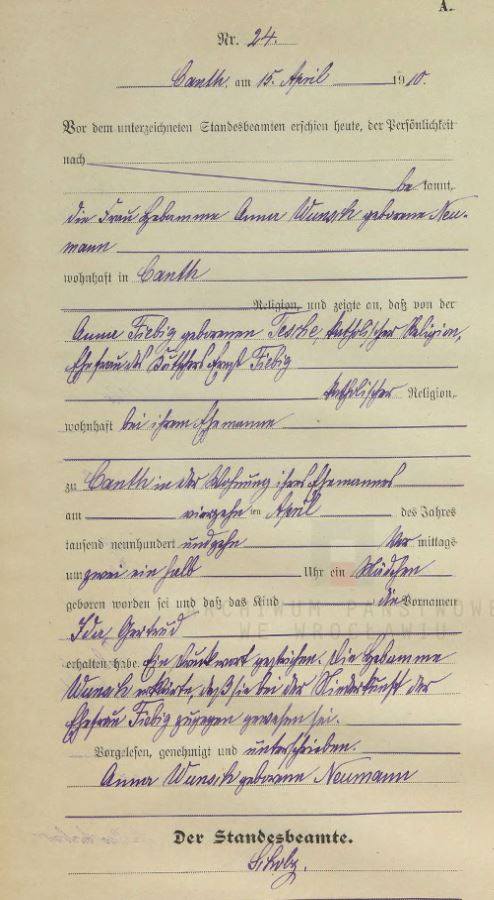 A.
Nr. 24.
Canth, am 15. April 1910.
Vor dem unterzeichneten Standesbeamten erschien heute, der Persönlichkeit
nach
be kannt,
die Frau Hebamme Anna Wunsch geborene Neu-
mann
wohnhaft in Canth
Religion, und zeigte an, daß von der
Anna Fiebig geborenen Tesche, katholischer Religion,
Ehefrau des Ernst Fiebig
katholischer Religion,
wohnhaft bei ihrem Ehemanne
zu Canth in der Wohnung ihres Ehemannes
am vierzehn ten April des Jahres
tausend neunhundert und zehn Vor mittags
um zwei ein halb Uhr ein Mädchen
geboren worden sei und daß das Kind die Vornamen
ARCHIWUM PAŃSTWOWE
Ida, Gertrud
WE WROCŁAWIU
erhalten habe. Ein Druckwort gestrichen. Die Hebamme
Wunsch erklärte, daß sie bei der Niederkunft der
Ehefrau Fiebig zugegen gewesen sei.
Vorgelesen, genehmigt und unterschrieben.
Anna Wunsch geborene Neumann
Der Standesbeamte.
Scholz.